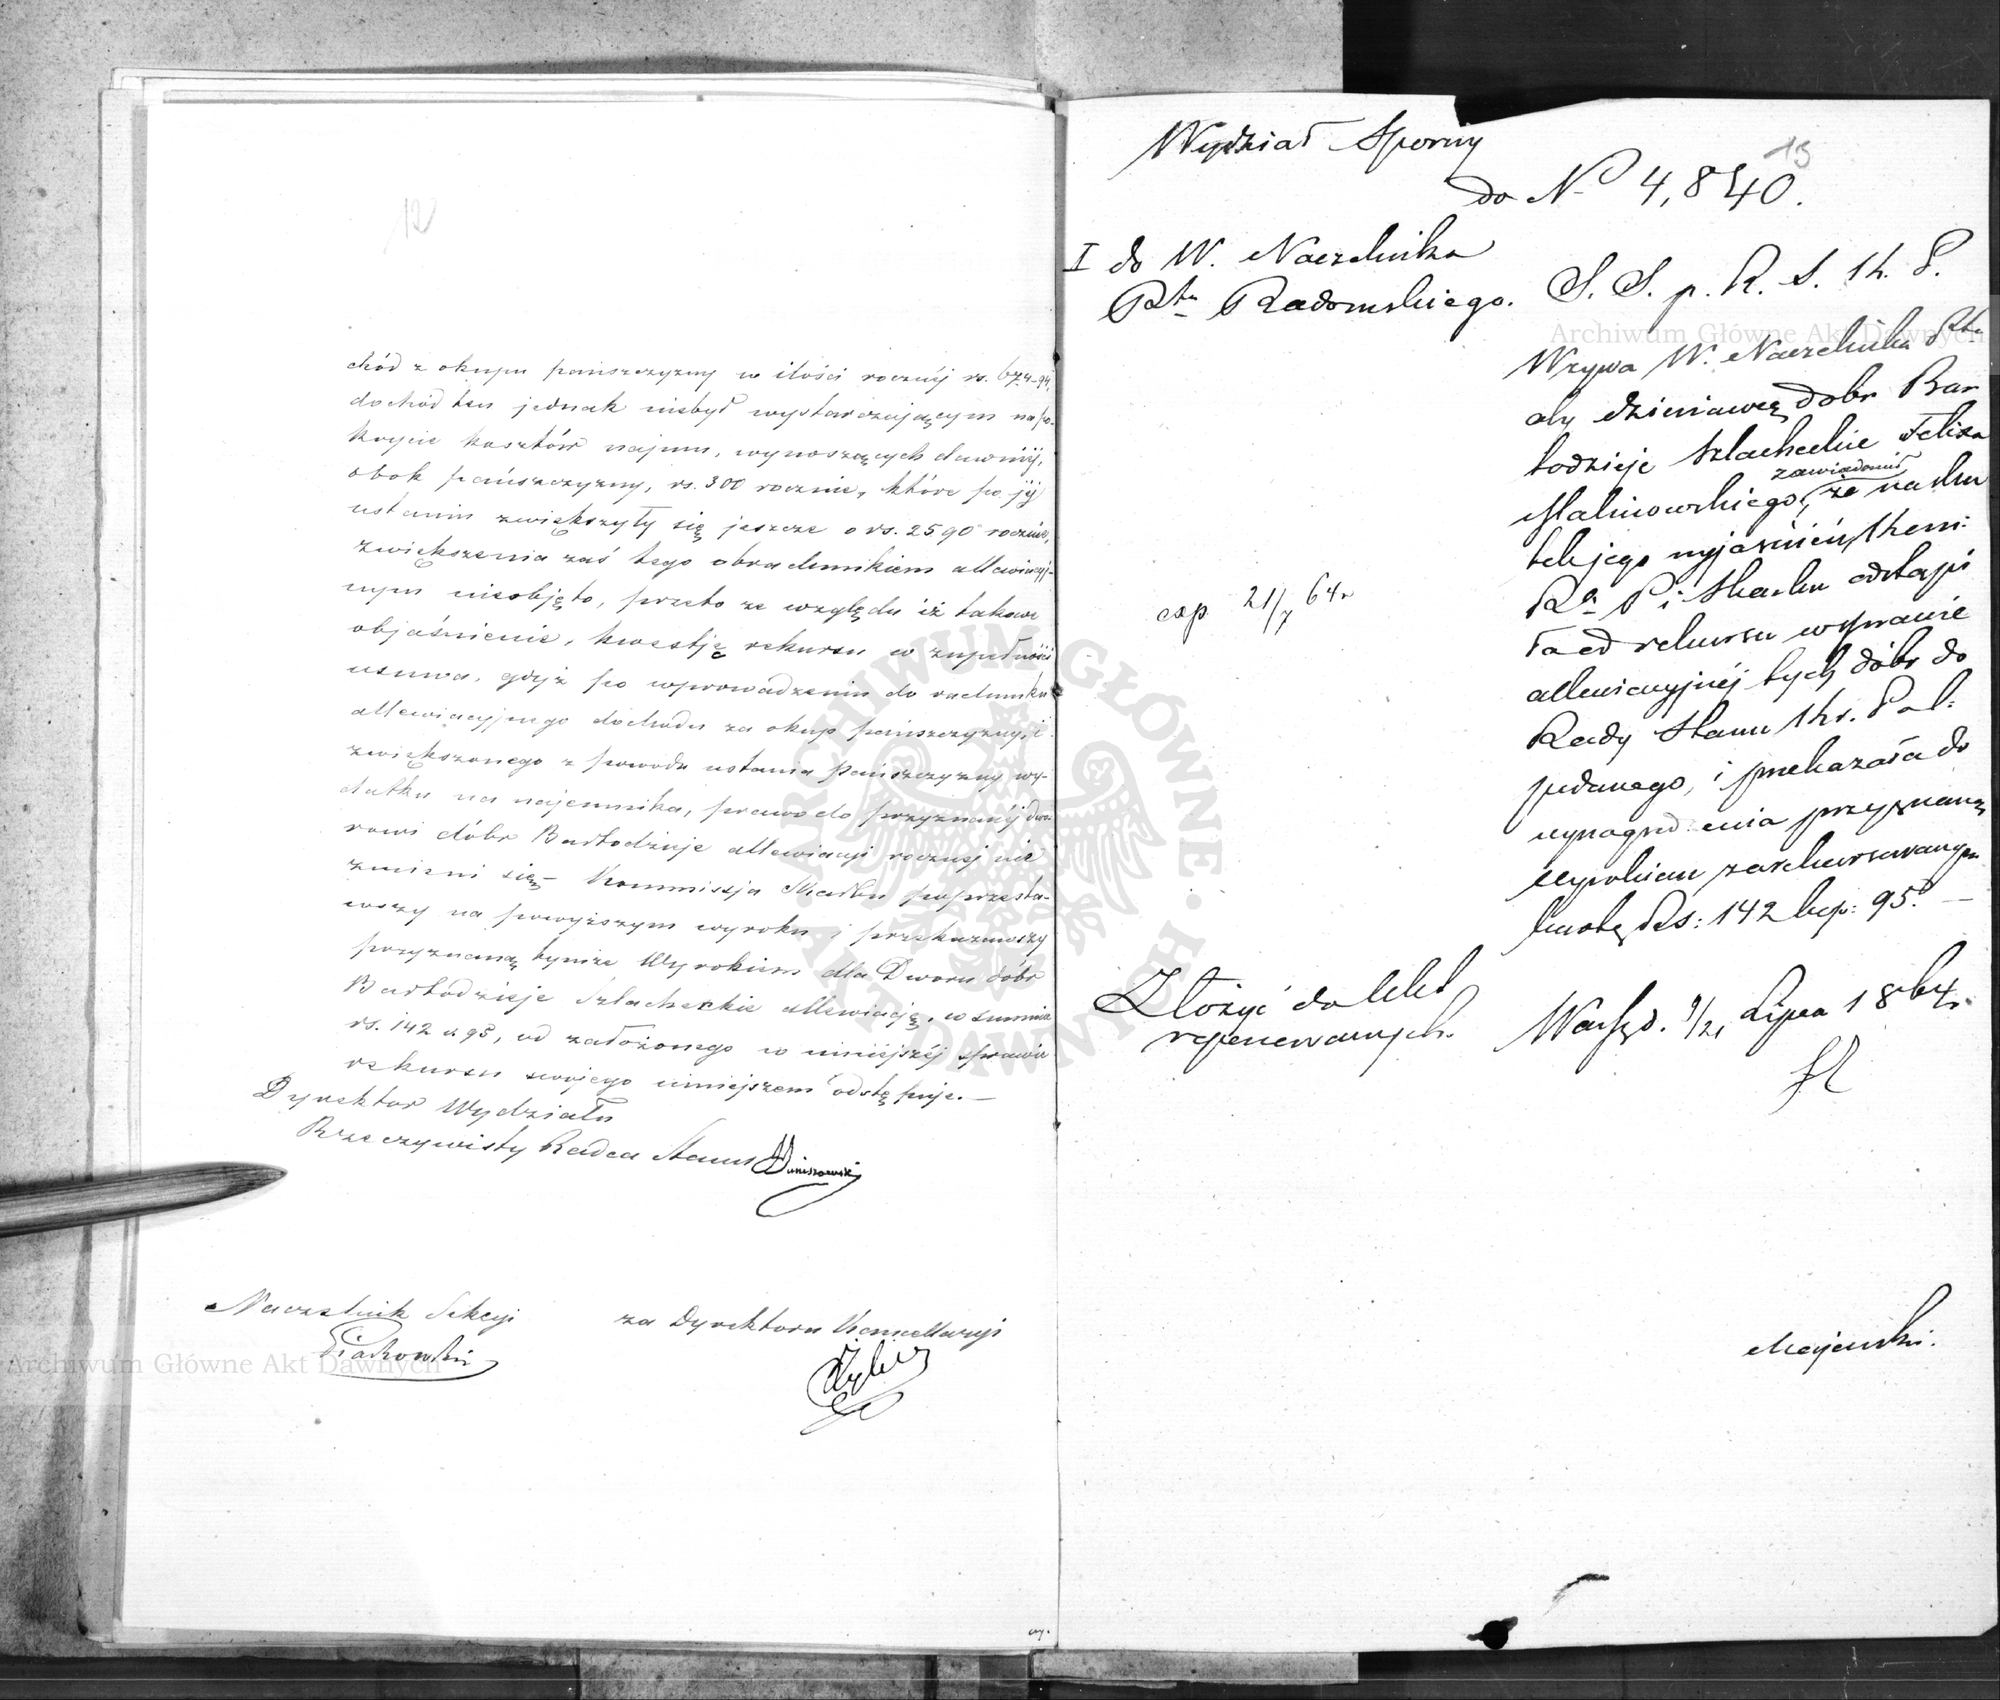 12
chód z okupu pańszczyzny w ilości roczniej rs. 674-94,
dochód ten jednak niebył wystarczającym na po-
krycie kosztów najmu, wynoszących dawniej,
obok pańszczyzny, rs. 300 rocznie, które po jej
ustaniu zwiększyły się jeszcze o rs. 2590 rocznie,
zwiększenia zaś tego obrachunkiem allewiacyj-
nym nieobjęto, przeto ze względu iż takowe
objaśnienie, kwestję rekursu w zupełności
usuwa, gdyż po wprowadzeniu do rachunku
allewiacyjnego dochodu za okup pańszczyzny, i
zwiększonego z powodu ustania pańszczyzny wy-
datku na najemnika, prawo do przyznanéj dwo-
rowi dóbr Bartodzieje allewiacji rocznej nie
zmieni się – Kommissja Skarbu poprzesta-
wszy na powyższym wyroku i przekazawszy
przyznaną tymże Wyrokiem dla Dworu dóbr
Bartodzieje Szlacheckie allewiację, w summie
rs. 142 k 95, od założonego w niniejszéj sprawie
rekursu swojego niniejszem odstępuje. –
Dyrektor Wydziału
Rzeczywisty Radca Stanu
Naczelnik Sekcyi
Piotrowski
za Dyrektora Kancellaryi
Wydział Sporny
13
do No 4,840.
I do W. Naczelnika
Ptu Radomskiego.
S. S. p. R. S. K. P.
Wzywa W. Naczelnika Ptu
aby dzierżawcę dobr Bar
todzieje Szlacheckie Felixa
Malinowskiego, zawiadomił że na sku
tek jego wyjaśnień, Kom:
Ra P i Skarbu odstąpi
ła od rekursu w sprawie
allewiacyjnéj tych dóbr do
Rady Stanu Kr. Pol:
podanego, i przekazała do
wynagrodzenia przyznaną
Wyrokiem zarekursowanym
kwotę Rs: 142 kop: 95. –
exp 21/7 64r
Złożyć do Akt
reponowanych.
Warsz. d. 9/21 Lipca 1864r.
Majewski.